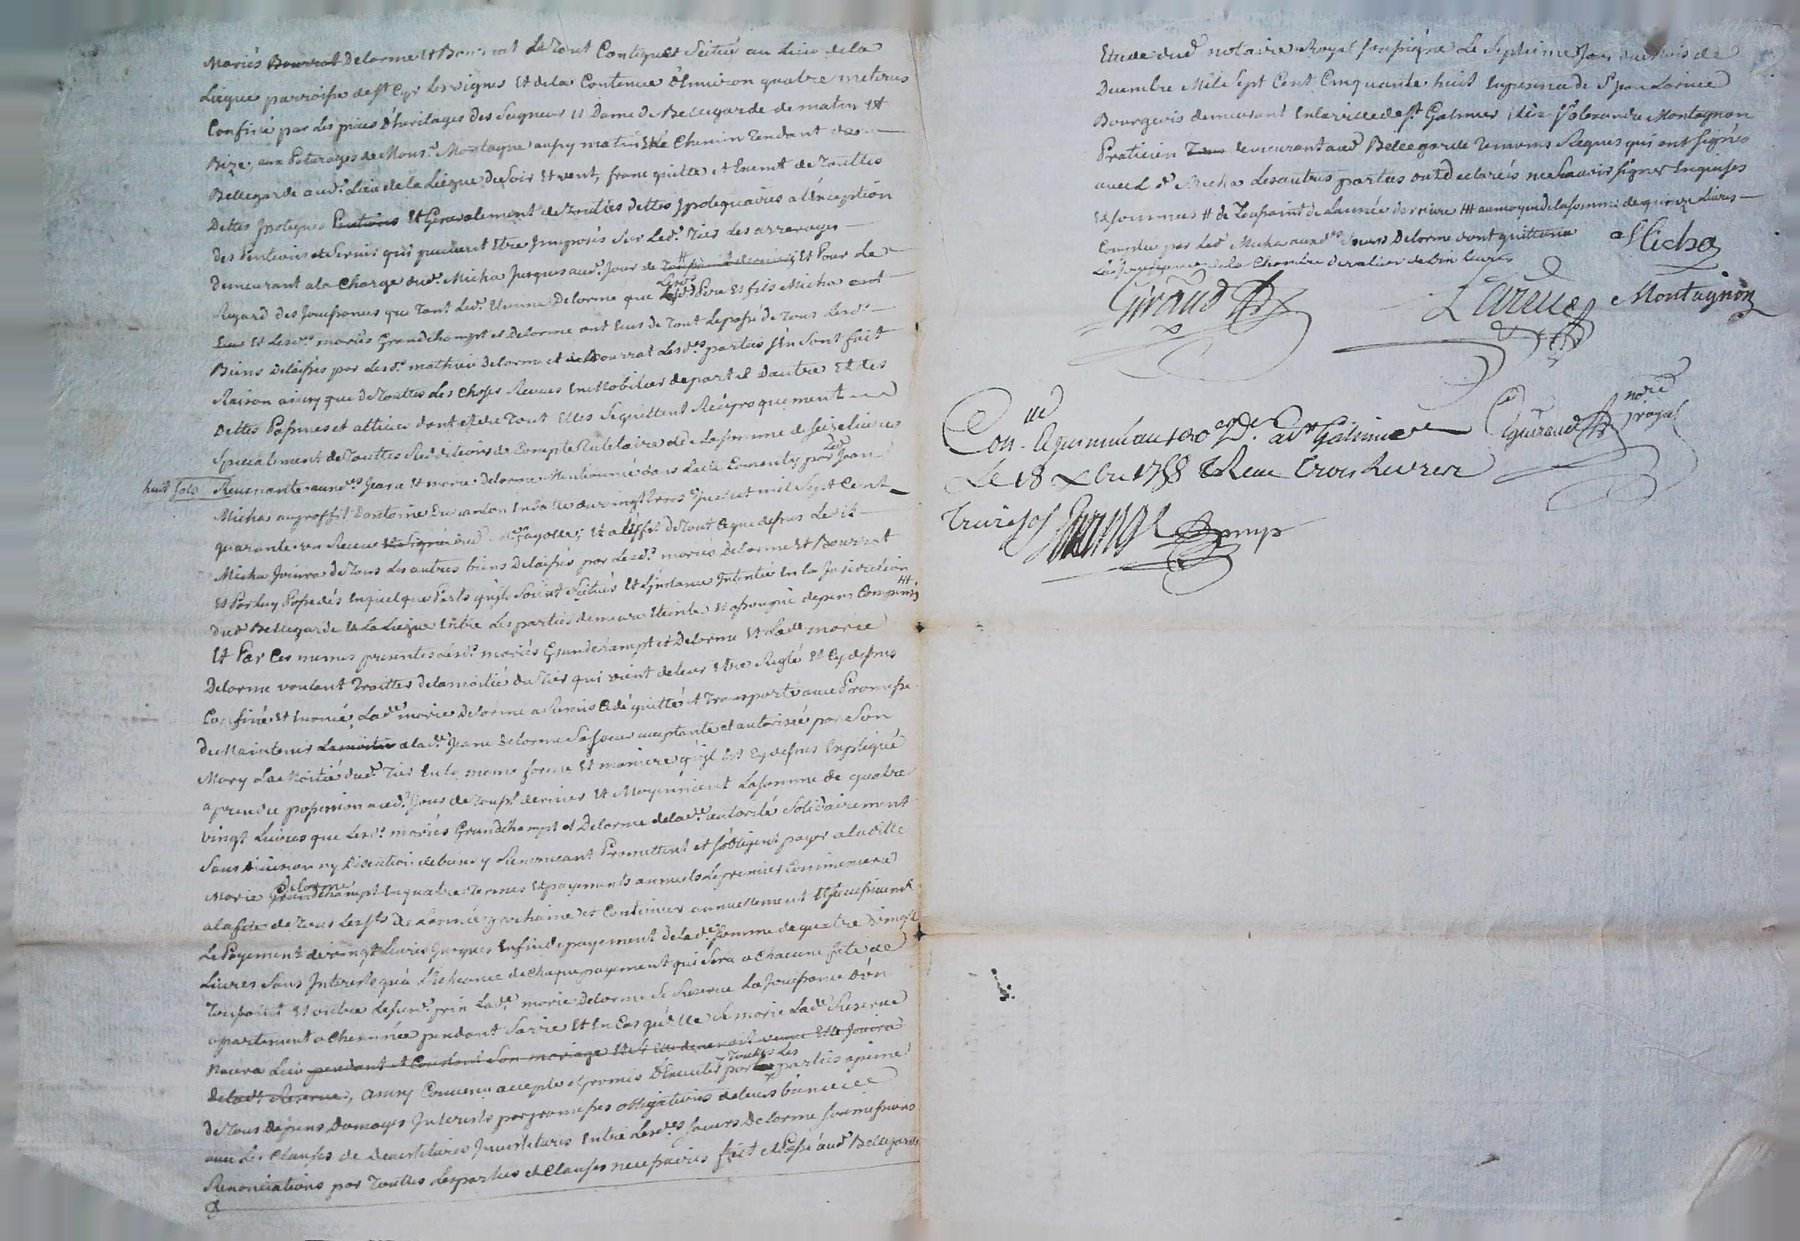 Mariés Bourrat Delorme Et Bourrat Le Tout Contigu et scitué au Lieu de la
Liegue parroisse de st Cyr Les vignes Et de la Contenue d'Environ quatre meterus
Confiné par Les prés d'heritages des Seigneur Et Dame de Bellegarde de matin Et
Bize, aux Paturages de Monsr Montagne aussy matin Et Le Chemin Tendant de
Bellegarde aud. Lieu de la Liegue, de Soir Et vent, franc quitte Et Exemt de Touttes
Dettes Ipoteques Pentions Et Generalement de Touttes dettes Ipotequaires a l'Exception
des Pentions et Servis qui peuvent Etre Imposés Sur Led. Tiers Les arrerages
demeurant a la Charge dud. Micha Jusques aud. Jour de Toussaint dernier Et Pour Le
Regard des Jouissances que Tant Led. Delorme que Lesd. Pere Et fils Micha ont
Eus Et Lesd. mariés Grandchampt et Delorme ont Eus de Tout Le passé de Tous Lesd.
Biens Delaissés par Lesd. mathieu Delorme et Bourrat Lesd. parties s'En Sont fait
Raison ainsy que de Touttes Les Choses Reçues En Mobilier de part et d'autre Et des
Dettes Passives et actives dont et du Tout Elles Se quittent Reciproquement
Specialement de Touttes Redditions de Compte Tutelaire et de La somme de seize livres
huit sols Revenante auxd. Jeane Et marie Delorme Mentionné dans L'acte Consenty par Led. Jean
Michas au proffit d'antoine En datte du vingt trois Juillet mil Sept Cent
quarante Reçue Et Signé Et a l'Effet de Tout Ce que dessus Led.
Micha Jouira de Tous Les autres biens Delaissés par Lesd. mariés Delorme Et Bourrat
Et Par luy Possedés En quelque Parts qu'ils Soient Scitués Et L'instance Intentée En la Jurisdiction
dud. Bellegarde Et La Liegue Entre Les parties demeure Eteinte Et assoupie depens Compensés
Et Par Ces memes presentes Lesd. mariés Grandchampt et Delorme Et Lad. marie
Delorme voulant Traitter de la moitié du Tiers qui vient de leur Etre Reglé Et Cy dessus
Confiné Et Enoncé, Lad. marie Delorme a Remis Cedé quitté et Transporté avec Promesse
de Maintenir La moitié a lad. Jeane Delorme Sa Soeur acceptante et autorisée par Son
Mary La Moitié dud. Tiers En La meme forme Et maniere qu'il Est Cy dessus Expliqué
a prendre possession aud. Jour de Tousst dernier Et Moyennant La somme de quatre
vingt Livres que Lesd. mariés Grandchampt et Delorme de lad. autorité Solidairement
Sans division ny Discution de biens y Renonceant Promettent et s'obligent payer a la ditte
Marie Grandchampt Delorme En quatre Termes Et payements annuels Le premier Commencera
a la fete de Tous Les sts De L'année prochaine et Continuer annuellement Et Successivement
Le Payement de vingt Livres Jusques En fin de payement de lad. somme de quatre vingt
Livres Sans Interests qu'a L'Echeance de Chaque payement qui Sera a Chacune fete de
Toussaint Et outre Lesusd. prix Lad. marie Delorme Se Reserve La Jouissance d'un
apartement a Cheminée pendant Sa vie Et En Cas qu'Elle Se marie Lad. Reserve
n'aura Lieu pendant et Constant Son mariage Et Si Elle devenoit veuve Elle Jouira
de lad. Reserve, ainsy Convenu accepté et promis d'Executer par Touttes Les parties a peine
de Tous Depens Domages Interests par promesses obligations de leurs biens
avec Les Clauses de Devestitures Investitures Entre Lesd. soeurs Delorme soumissions
Renonciations par Touttes Les parties et Clauses necessaires fait et Passé aud. Bellegarde
Etude dud. notaire Royal soussigné Le Septieme Jour du mois de
Decembre Mil Sept Cent Cinquante huit En presence de Sr Jean Larüe
Bourgeois demeurant En la ville de st Galmier et de Sr alexandre Montagnon
Praticien demeurant aud. Bellegarde Temoins Requis qui ont Signés
avec Le d. Micha Les autres parties ont declarées ne Scavoir Signer Enquises
Et sommées # de Toussaint de L'année derniere ## au moyen de la somme de quinze Livres
Comptée par Led. Micha auxd. Soeurs Delorme dont quittance
Micha
Giraud
Larüe
Montagnon
Con. lle a st Galmier
Le 18 Xbre 1758 Reçu Trois Livres
Treize s
Giraud nore royal